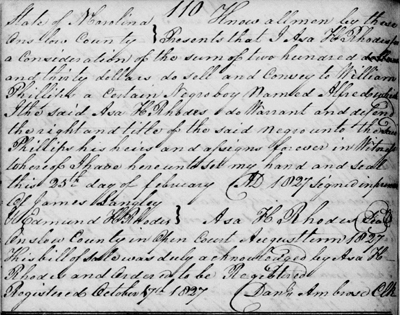 110
State of N Carolina } Know all men by these
Onslow County } Presents that I Asa H Rhodes for
a Consideration of the sum of two hundred
and thirty dollars do sell and Convey to William
Phillips a Certain Negro boy Named Alfred which
I the said Asa H Rhodes do Warrant and defend
the right and title of the said Negro unto the said
Phillips his heirs and assigns forever in Witness
whereof I have hereunto set my hand and seal
this 25th day of february AD 1827 Signd in presence
of James Langley
Edmund H Rhodes } Asa H Rhodes Seal
Onslow County in Open Court August term 1827
this bill of sale was duly acknowledged by Asa H
Rhodes and Ordered to be Registered
Registered October 17th 1827 Danl Ambrose Clk